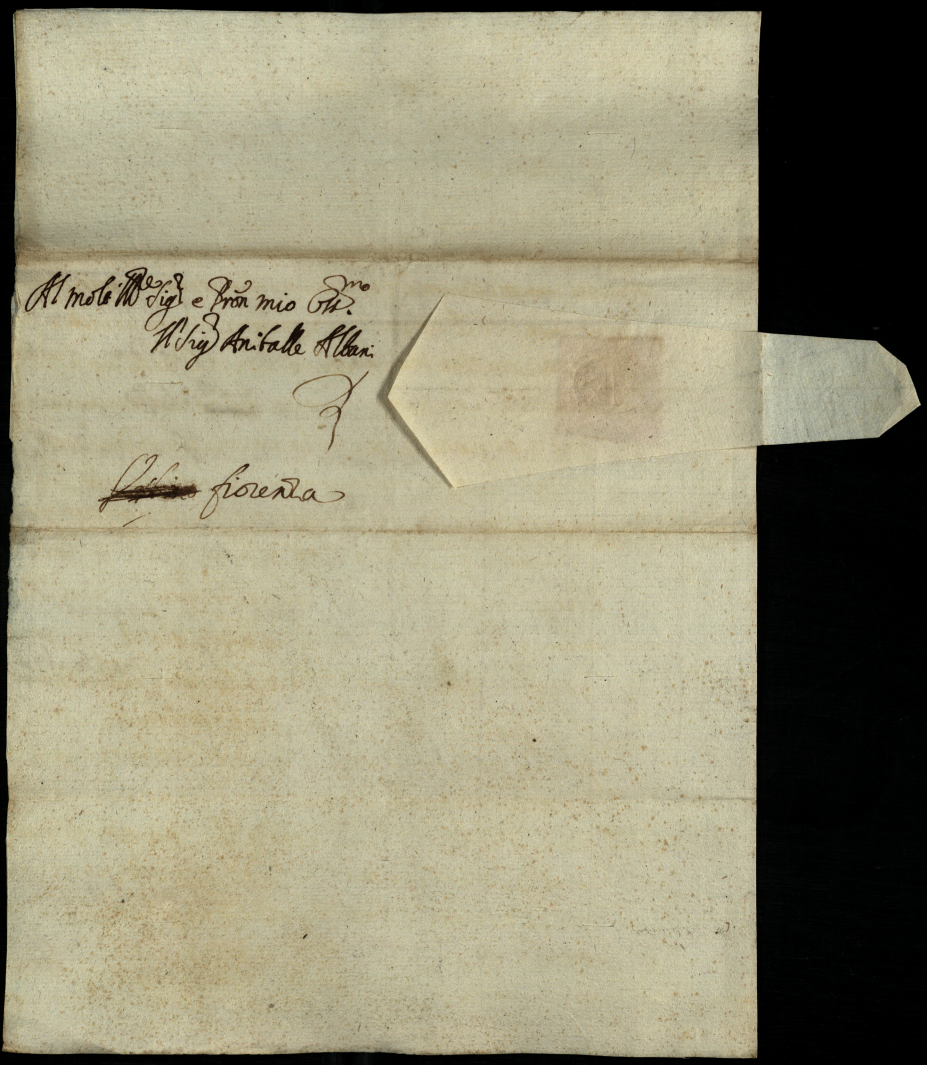 Al molt' Ill.re Sig.r e Pron mio Oss.mo
Il Sig.r Aniballe Albani
fiorenza